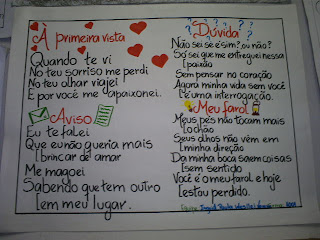 À primeira vista
Quando te vi
No teu sorriso me perdi
No teu olhar viajei
E por você me apaixonei.
Aviso
Eu te falei
Que eu não queria mais
[brincar de amar
Me magoei
Sabendo que tem outro
[em meu lugar.
Dúvida
Não sei se é sim? ou não?
Só sei que me entreguei nessa
[paixão
Sem pensar no coração
Agora minha vida sem você
[é uma interrogação.
Meu farol
Meus pés não tocam mais
[o chão
Seus olhos não vêm em
[minha direção
Da minha boca saem coisas
[sem sentido
Você é o meu farol e hoje
[estou perdido.